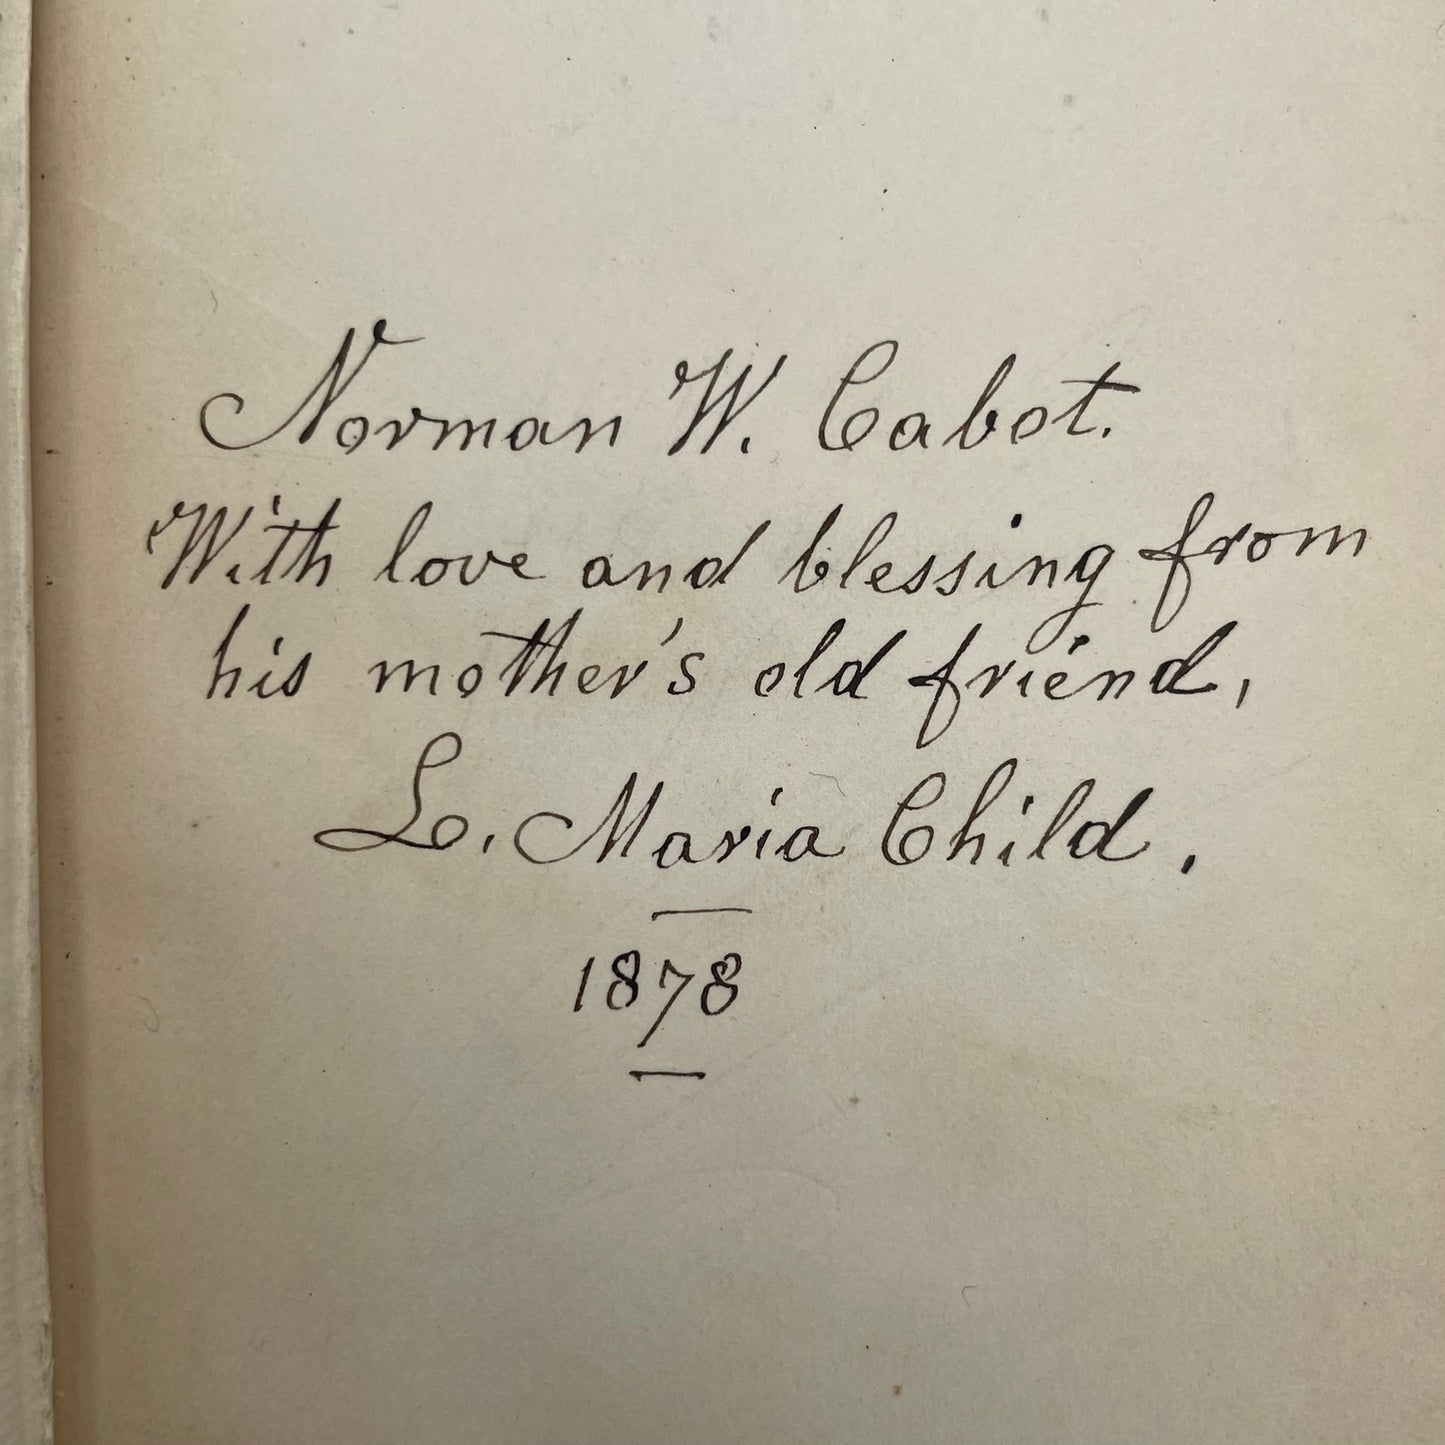 Norman W. Cabot.
With love and blessing from
his mother's old friend,
L. Maria Child.
1878